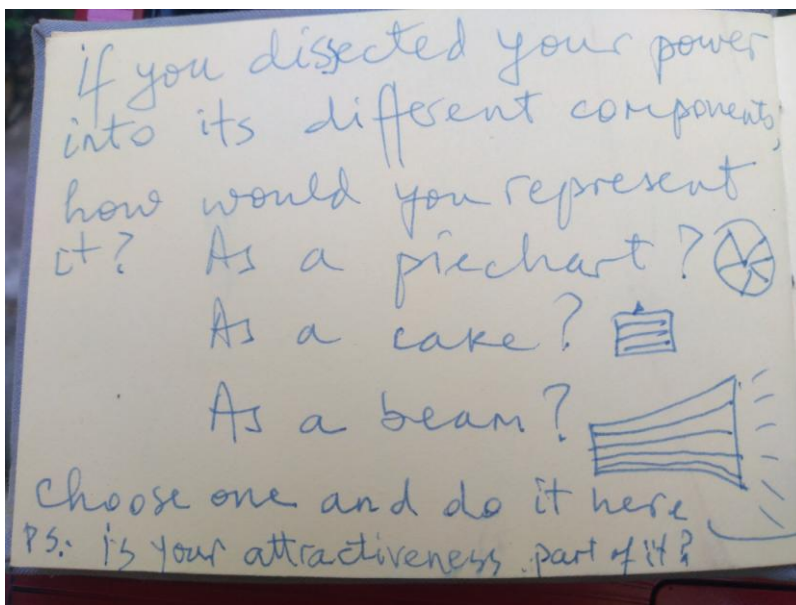 if you dissected your power
into its different components,
how would you represent
it? As a piechart?
As a cake?
As a beam?
Choose one and do it here
PS: is your attractiveness part of it?